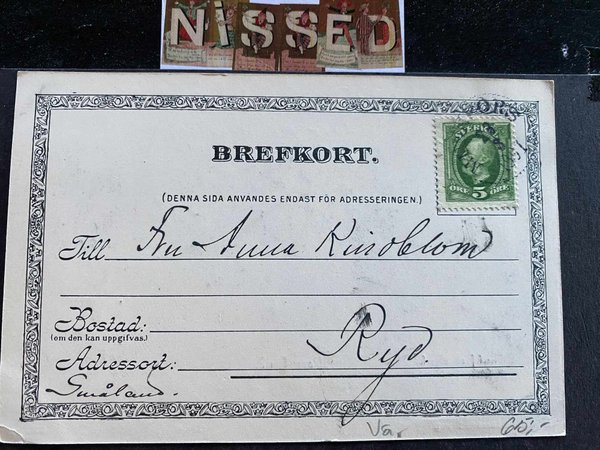 NISSED
BREFKORT.
(DENNA SIDA ANVANDES ENDAST FÖR ADRESSERINGEN.)
SVERIGE
ÖRE 5 ÖRE
Till Fru Anna Kindblom
Bostad:
(om den kan uppgifvas.)
Ryd.
Adressort:
Småland.
60:-